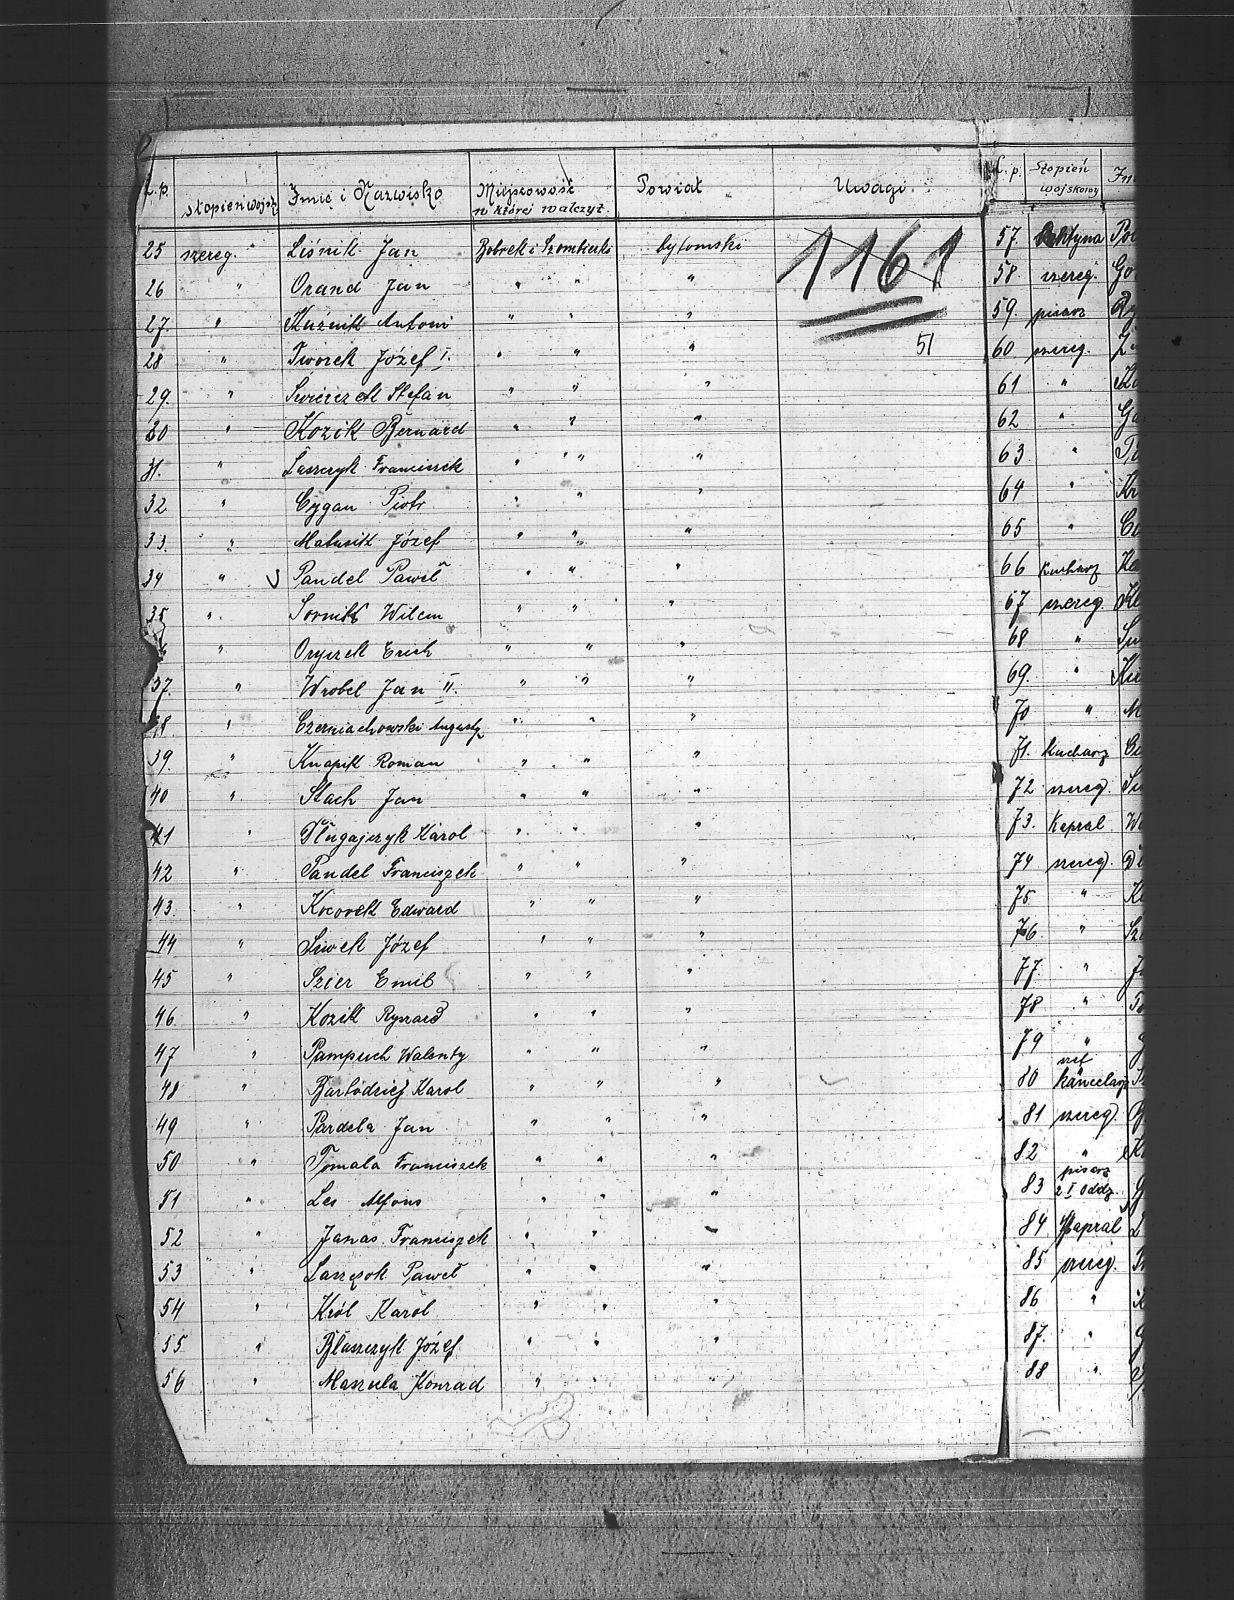 L.p. stopień wojsk Imię i Nazwisko Miejscowość w której walczył. Powiat Uwagi
25 szereg. Liśnik Jan Bobrek i Szombierki bytomski 1161
26 " Orand Jan " " "
27. " Kuźnik Antoni " " "
28 " Tworek Józef I. " " " 51
29. " Świerczek Stefan " " "
30 " Kozik Bernard " " "
31. " Laszczyk Franciszek " " "
32 " Cygan Piotr " " "
33. " Matusik Józef " " "
34 " Pandel Paweł " " "
35 " Sornik Wilem " " "
" Oryszek Erich " " "
37. " Wrobel Jan II. " " "
38 " Czerniachowski August " " "
39. " Knapik Roman " " "
40 " Stach Jan " " "
41 " Długajczyk Karol " " "
42 " Pandel Franciszek " " "
43. " Kocorek Edward " " "
44 " Siwek Józef " " "
45 " Szier Emil " " "
46 " Kozik Ryszard " " "
47 " Pampuch Walenty " " "
48 " Bartodziej Karol " " "
49 " Pardela Jan " " "
50 " Tomala Franciszek " " "
51 " Les Alfons " " "
52 " Janas Franciszek " " "
53 " Laszczok Paweł " " "
54 " Król Karol " " "
55 " Błaszczyk Józef " " "
56 " Maszula Konrad " " "
L.p. Stopień wojskowy
57.
58 szereg.
59. pisarz
60 szereg.
61 "
62 "
63 "
64 "
65 "
66 kucharz
67 szereg.
68 "
69. "
70 "
71. kucharz
72 szereg.
73. Kapral
74 szereg.
75 "
76 "
77. "
78 "
79 "
80 szef kancelarji
81 szereg.
82 "
83 pisarz 2 I oddz.
84 Kapral
85 szereg.
86 "
87. "
88 "